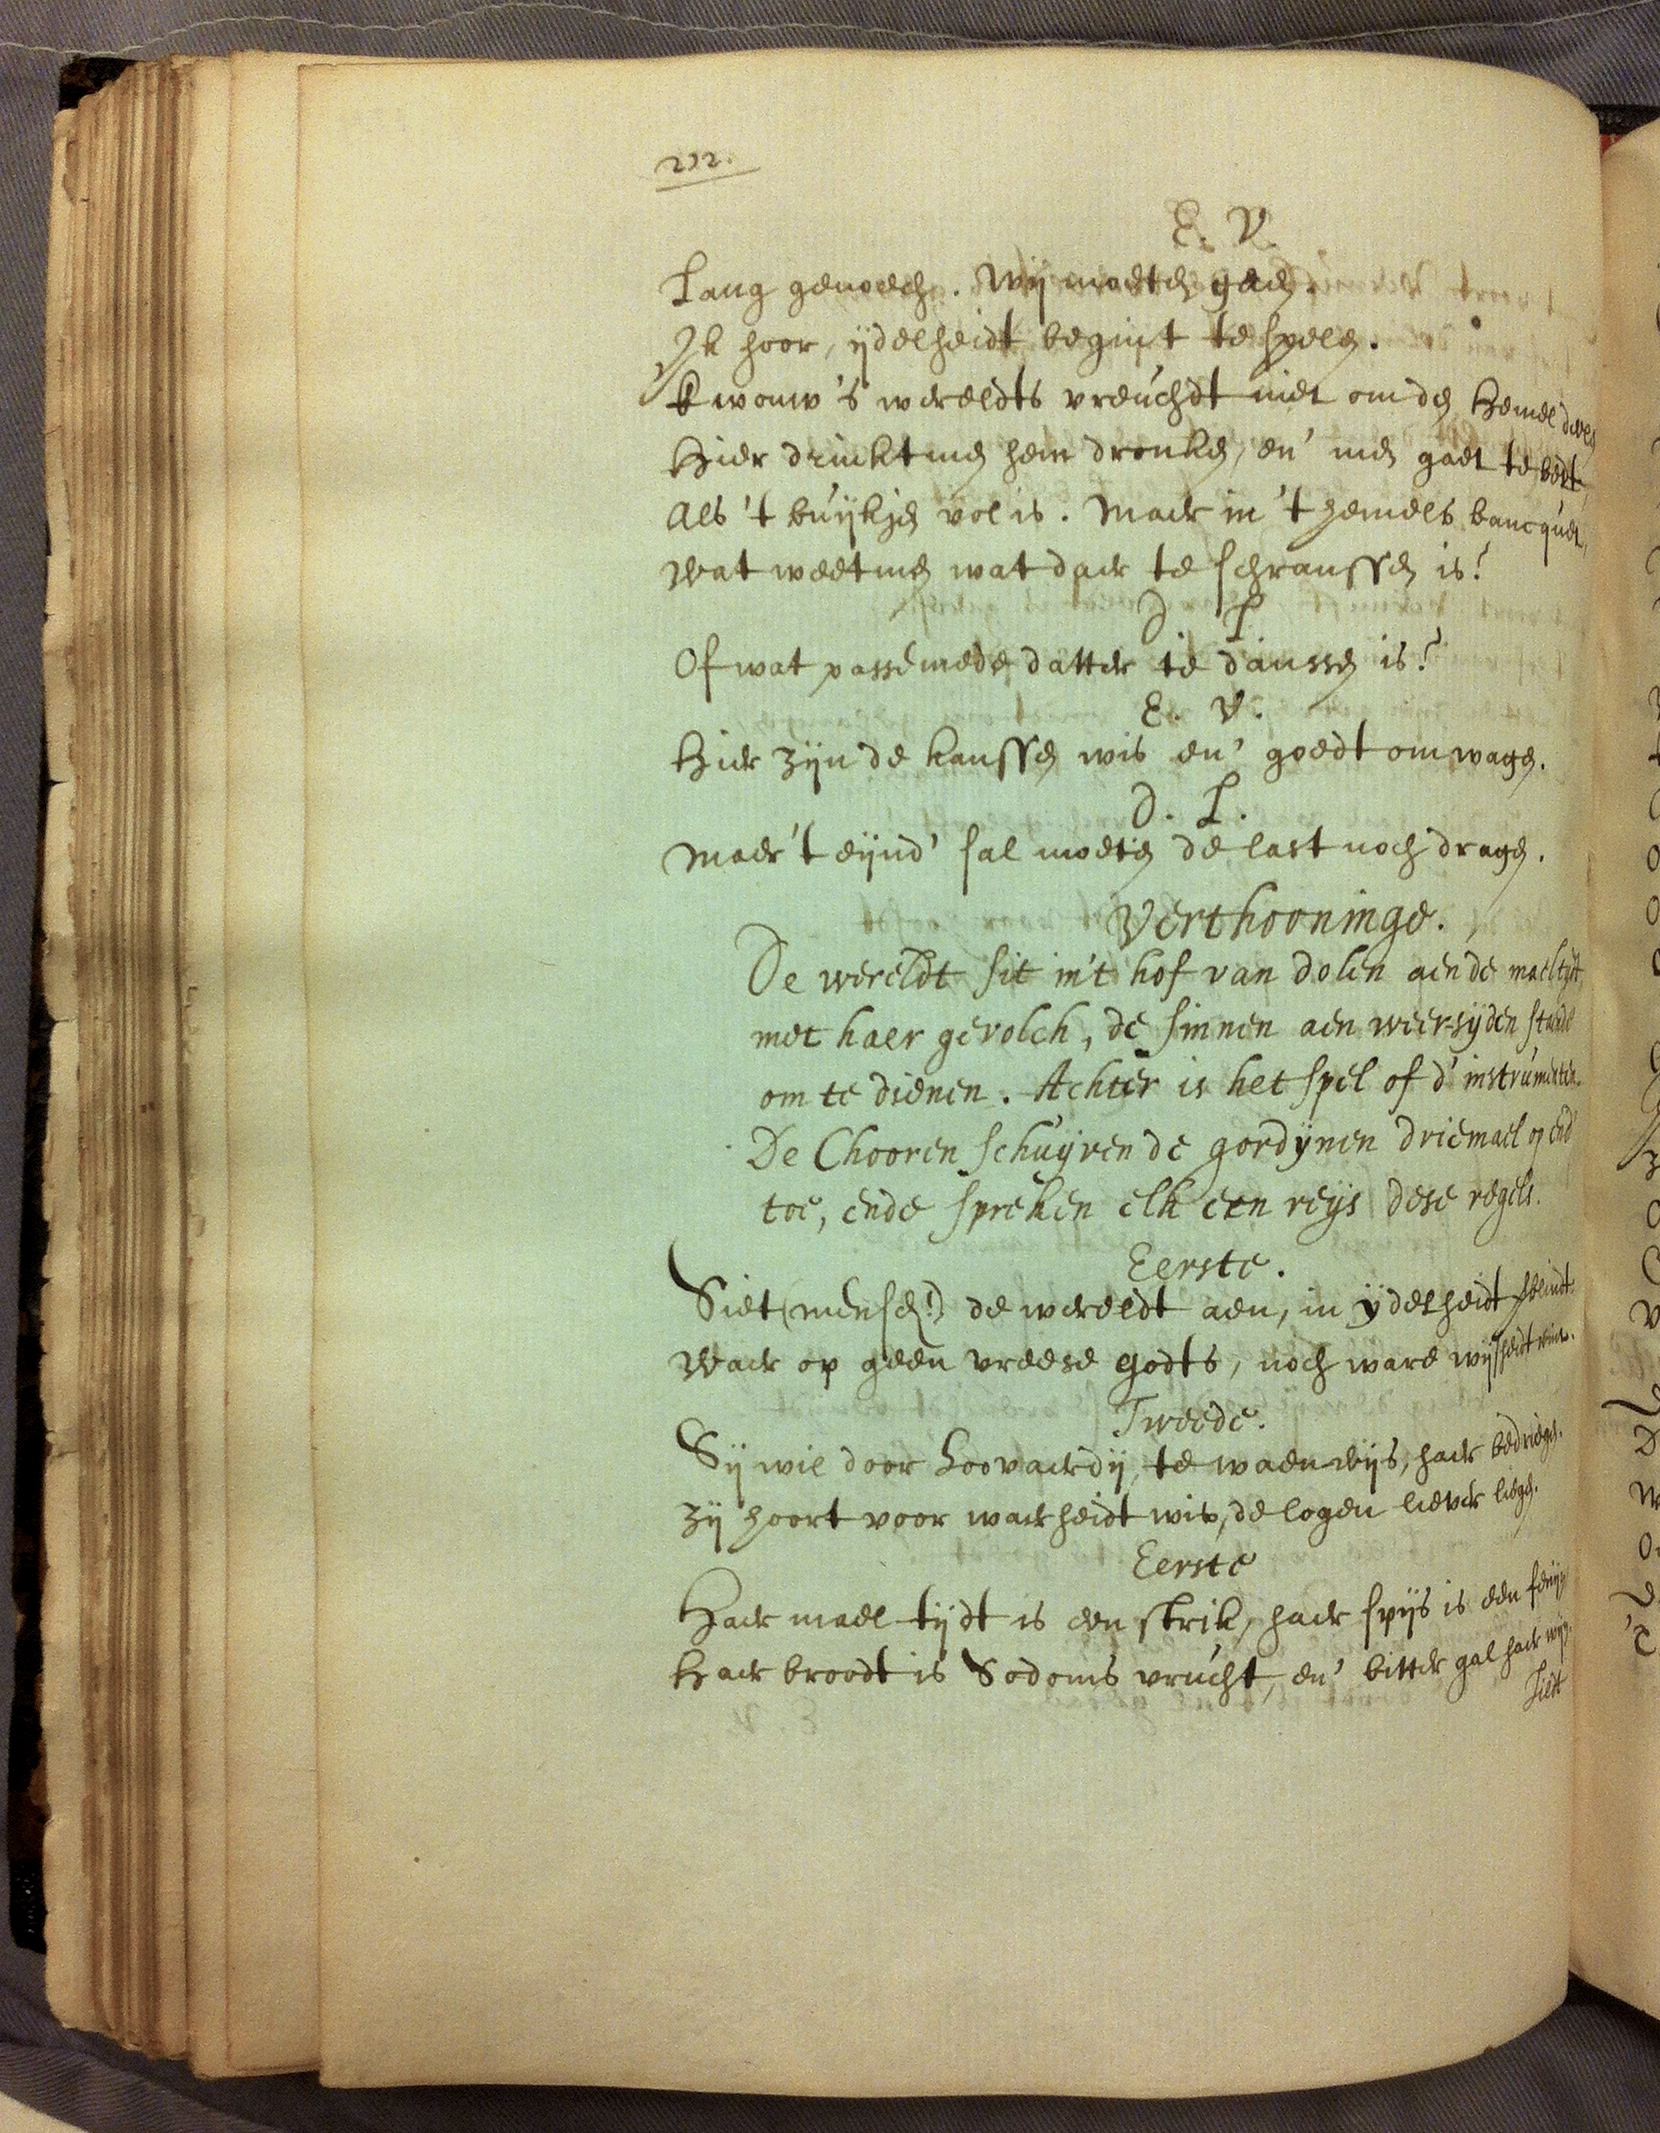 232.
E. V.
Lang genoech. Wij moeten gaen.
Ik hoor, ijdelheidt begint te spelen.
'k wouw 's werelts vreuchdt niet om den Hemel
Hier drinktmen hem dronken, en' men gaet te bedt,
Als 't buijkjen vol is. Maer in 't hemels bancquet,
Wat weetmen wat daer te schranssen is?
D. L.
Of wat passemede datter te danssen is?
E. V.
Hier zijn de kanssen wis en' goedt om wagen.
D. L.
Maer 't eijnd' sal moeten de last noch dragen.
Verthooninge.
De wereldt sit in't hof van dolen aen de maeltijt
met haer gevolch, de sinnen aen weer-sijden
om te dienen. Achter is het spel of d'instrumenten.
De Chooren schuijven de gordijnen driemael op end'
toe, ende spreken elk een reijs dese regels.
Eerste.
Siet (menschen!) de wereldt aen, in ijdelheidt
Waer op geen vreese godts, noch ware wijsheidt
Tweede.
Sij wil door hoovaerdij, te waenwijs, haer bedriegen.
Zij hoort voor waerheidt wis, de logen liever liegen.
Eerste
Haer maeltijdt is een strik, haer spijs is een fenijn
Haer broodt is Sodoms vrucht, en' bitter gal haer wijn.
Siet